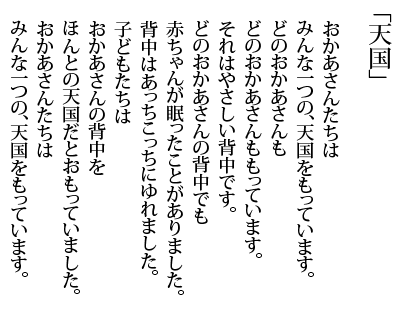 「天国」
おかあさんたちは
みんな一つの、天国をもっています。
どのおかあさんも
どのおかあさんももっています。
それはやさしい背中です。
どのおかあさんの背中でも
赤ちゃんが眠ったことがありました。
背中はあっちこっちにゆれました。
子どもたちは
おかあさんの背中を
ほんとの天国だとおもっていました。
おかあさんたちは
みんな一つの、天国をもっています。